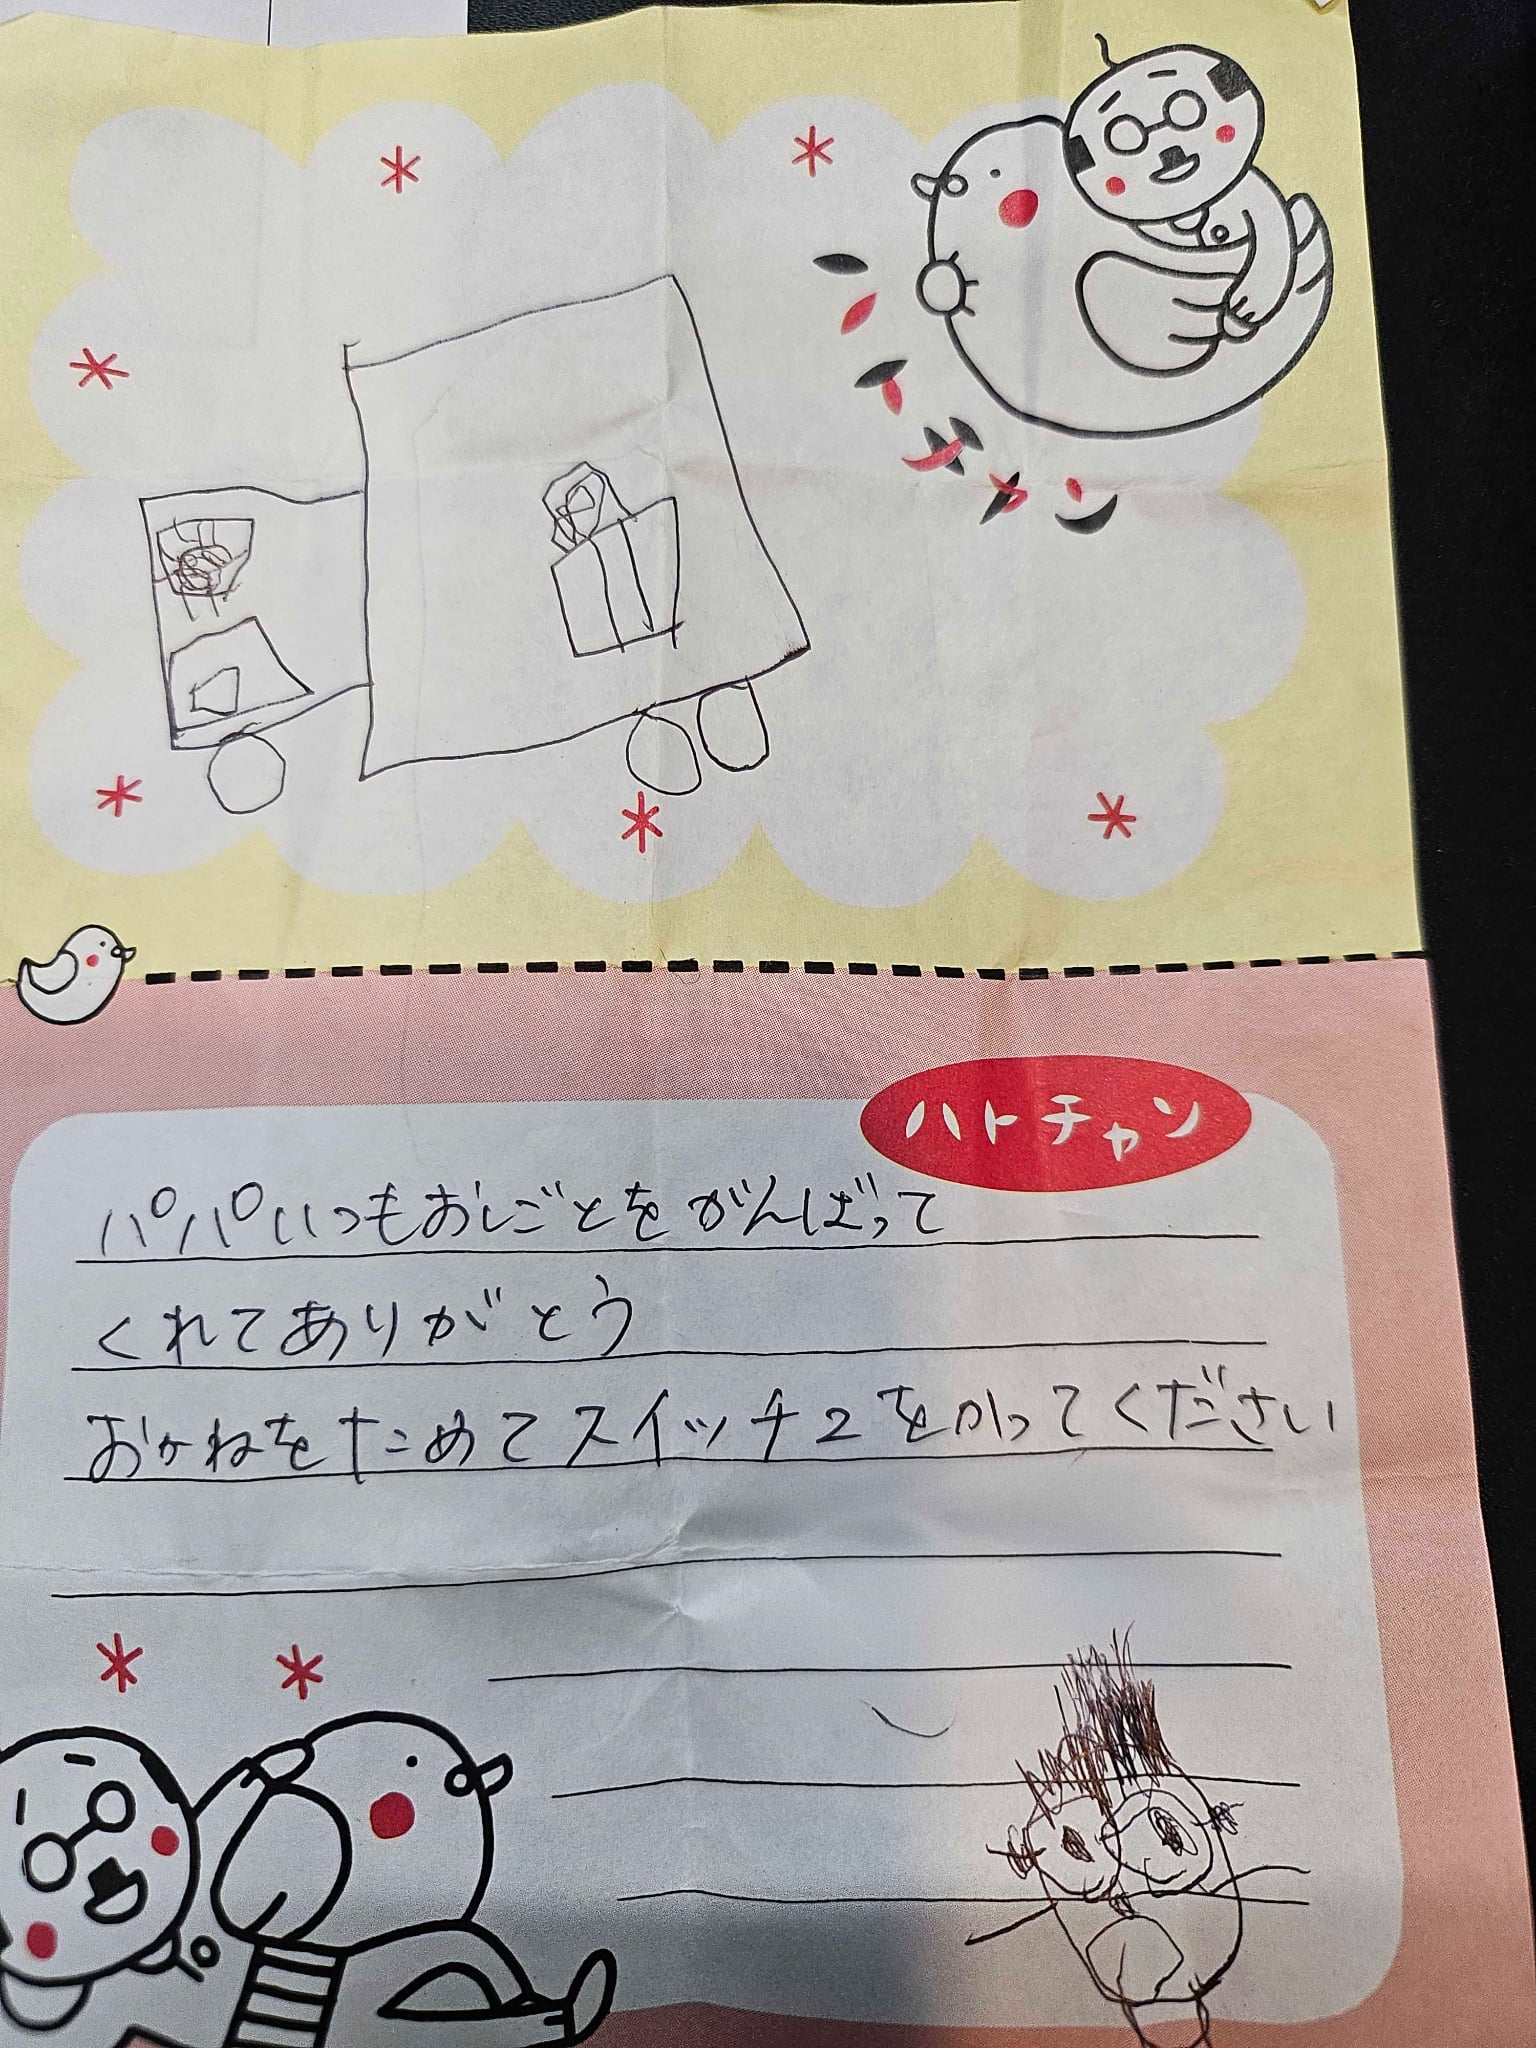 ハトチャン
ハトチャン
パパいつもおしごとをがんばって
くれてありがとう
おかねをためてスイッチ2をかってください